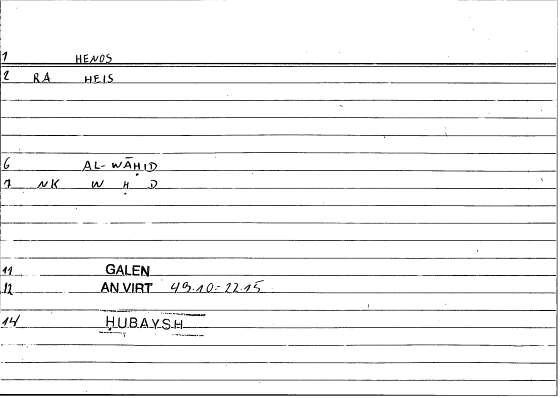 1 HENOS
2 RA HEIS
6 AL-WĀḤID
7 NK W Ḥ D
11 GALEN
12 AN.VIRT 49.10 = 22.15
14 ḤUBAYSH